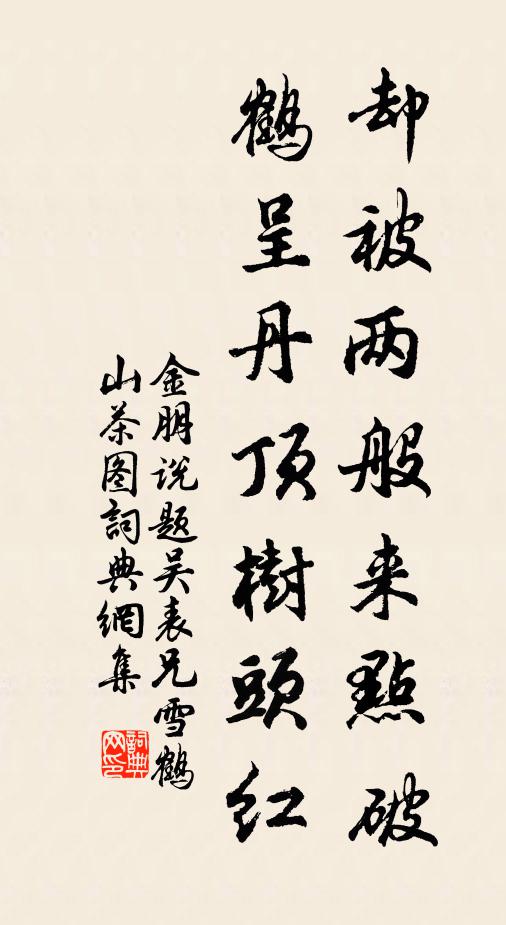 却被两般来點破
鹤呈丹顶樹頭红
金朋说题吴表兄雪鹤
山茶图詞典網集
詞典网印